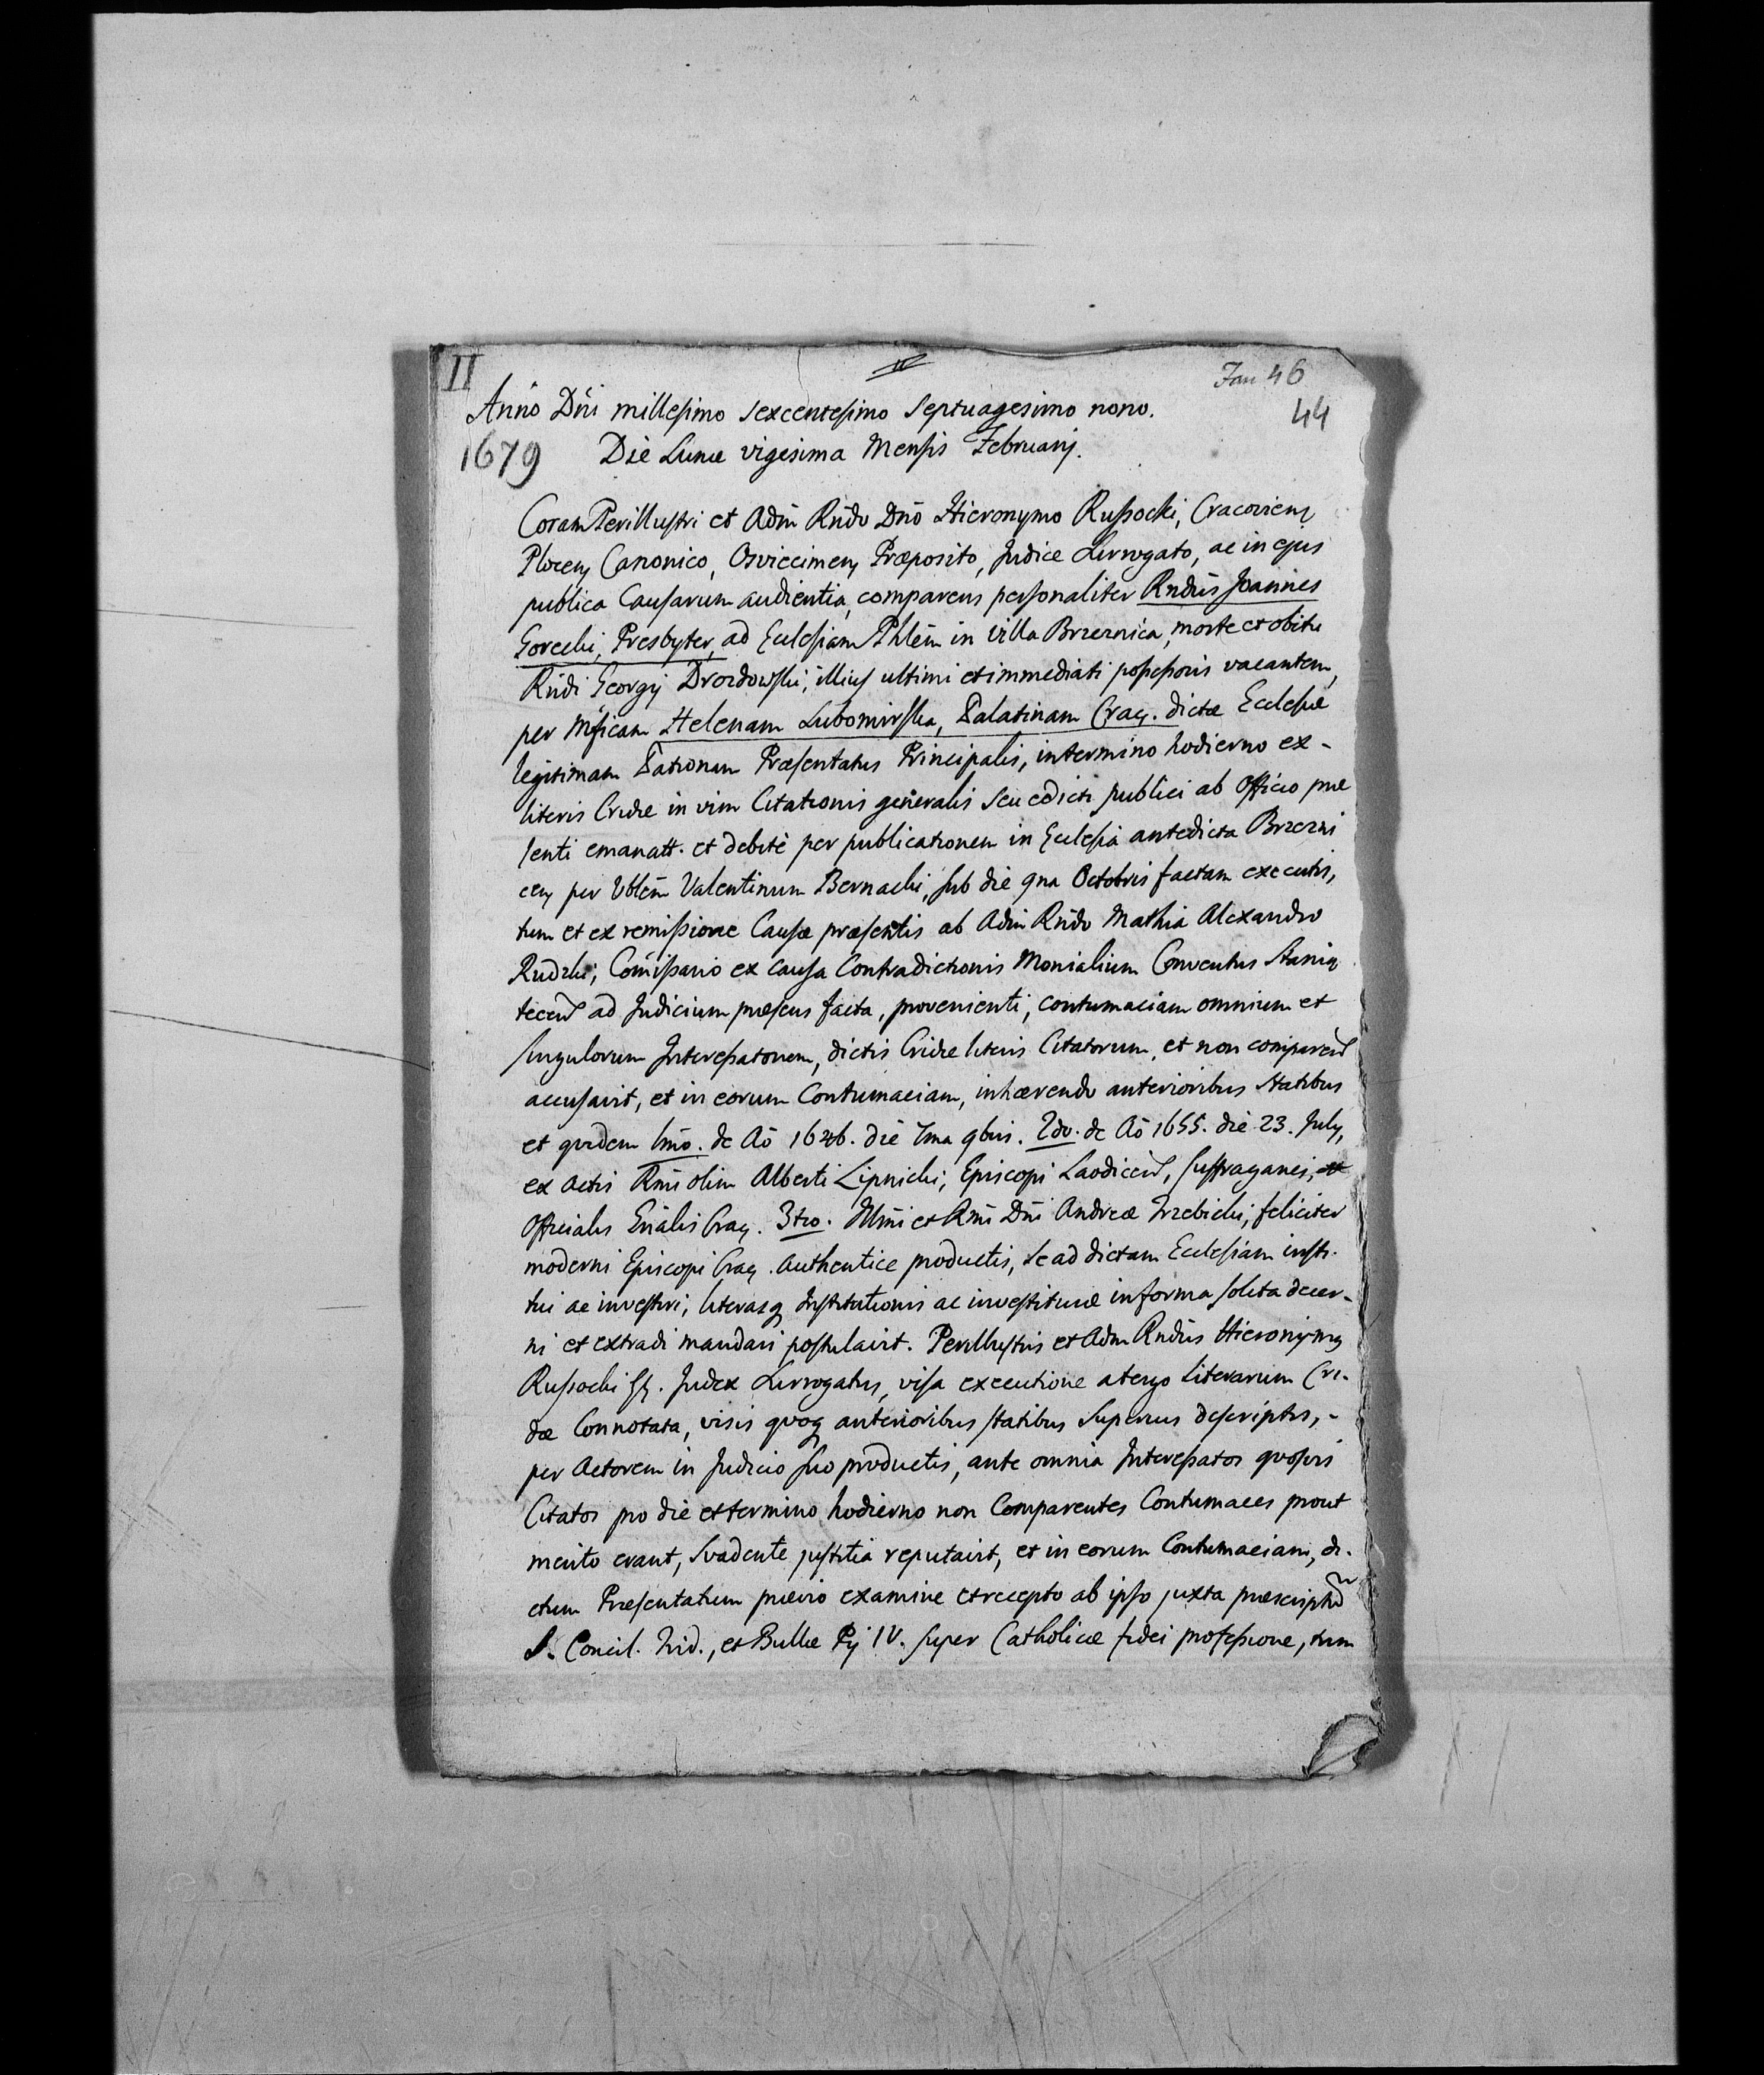 II
Fan 46
44
Anno Dñi millesimo sexcentesimo septuagesimo nono.
1679 Die Lunæ vigesima Mensis Februarij.
Coram Perillustri et Adm̃ Rñdo Dño Hieronymo Russocki, Cracovien̨
Plocen̨ Canonico, Osviecimen̨ Præposito, Judice Surrogato, ac in ejus
publica Causarum audientia, comparens personaliter Rndūs Joannes
Gorecki, Presbyter, ad Ecclesiam Phlem̃ in Villa Brzeznica, morte et obitu
Rñdi Georgij Drozdowski, illius ultimi et immediati possessoris vacantem,
per Mficam Helenam Lubomirska, Palatinam Crac̨. dictæ Ecclesiæ
legitimam Patronam Præsentatus Principalis, in termino hodierno ex-
literis Cridæ in vim Citationis generalis seu edicti publici ab Officio præ
senti emanatt. et debitè per publicationem in Ecclesiá antedicta Brzezni
cen̨ per Vblem̃ Valentinum Bernacki, sub die qna Octobris factam executis,
tum et ex remissione Causæ præsentis ab Adm̃ Rñdo Mathia Alexandro
Rudzki, Com̃issario ex causa Contradictionis Monialium Conventus Staniq
tecen̄ ad Judicium præsens facta, provenienti, contumaciam omnium et
singulorum Interessatorum, dictis Cridæ literis Citatorum, et non comparen̄
accusavit, et in eorum Contumaciam, inhærendo anterioribus statibus
et quidem Imo. de Aō 1646. die 7ma 9bris. 2do. de Aō 1655. die 23. July,
ex Actis Rm̃i olim Alberti Lipnicki, Episcopi Laodicen̄, suffraganei,
Officialis Gñalis Crac̨. 3tio. Illm̃i et Rm̃i Dñi Andreæ Trzebicki, feliciter
moderni Episcopi Crac̨. authentice productis, se ad dictam Ecclesiam insti-
tui ac investiri, literasq̨ Institutionis ac investituræ in forma solita decer-
ni et extradi mandari postulavit. Perillustris et Adm Rndūs Hieronymus
Russocki Judex Surrogatus, visa executione a tergo Literarum Cri-
dæ Connotata, visis quoq̨ anterioribus statibus superius descriptis,-
per Actorem in Judicio suo productis, ante omnia Interessatos quosvis
Citatos pro die et termino hodierno non Comparentes Contumaces prout
merito erant, Suadente justitia reputavit, et in eorum Contumaciam, di-
ctum Præsentatum prævio examine et recepto ab ipso juxta præscriptū
S. Concil. Trid., et Bullæ Pij IV. super Catholicæ fidei professione, tum